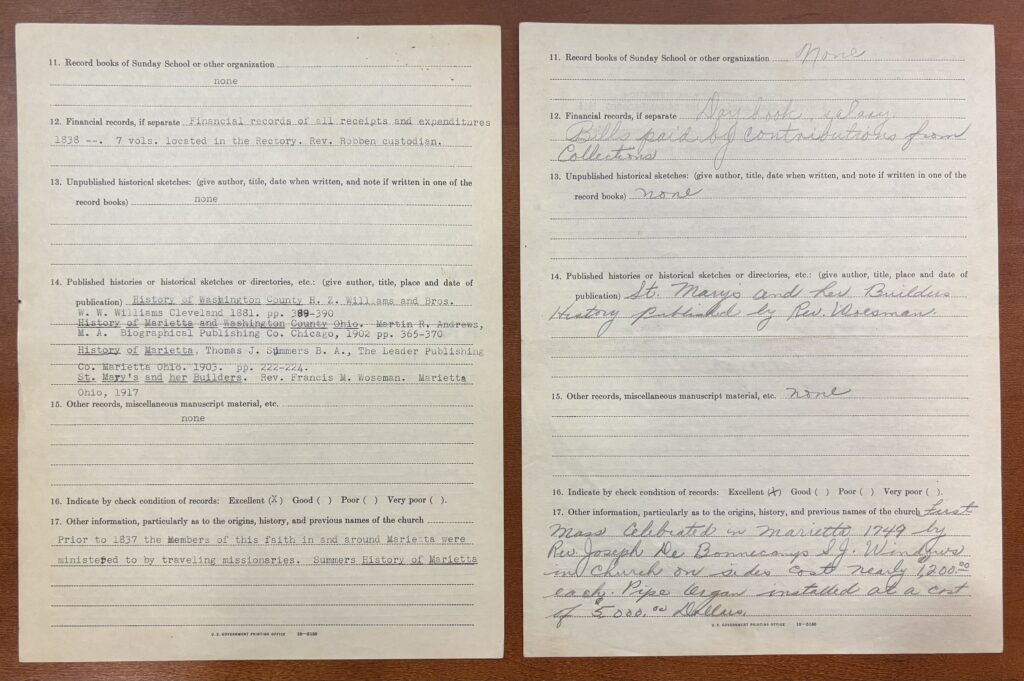 11. Record books of Sunday School or other organization
none
12. Financial records, if separate Financial records of all receipts and expenditures
1838 --. 7 vols. located in the Rectory. Rev. Robben custodian.
13. Unpublished historical sketches: (give author, title, date when written, and note if written in one of the
record books) none
14. Published histories or historical sketches or directories, etc.: (give author, title, place and date of
publication) History of Washington County H. Z. Williams and Bros.
W. W. Williams Cleveland 1881. pp. 389-390
History of Marietta and Washington County Ohio. Martin R. Andrews,
M. A. Biographical Publishing Co. Chicago, 1902 pp. 365-370
History of Marietta, Thomas J. Summers B. A., The Leader Publishing
Co. Marietta Ohio. 1903. pp. 222-224.
St. Mary's and her Builders. Rev. Francis M. Woseman. Marietta
Ohio, 1917
15. Other records, miscellaneous manuscript material, etc.
none
16. Indicate by check condition of records: Excellent (X) Good ( ) Poor ( ) Very poor ( ).
17. Other information, particularly as to the origins, history, and previous names of the church
Prior to 1837 the members of this faith in and around Marietta were
ministered to by traveling missionaries. Summers History of Marietta
U. S. GOVERNMENT PRINTING OFFICE 16-6180
11. Record books of Sunday School or other organization None
12. Financial records, if separate Day book, salary
Bills paid by contributions from
Collections
13. Unpublished historical sketches: (give author, title, date when written, and note if written in one of the
record books) none
14. Published histories or historical sketches or directories, etc.: (give author, title, place and date of
publication) St. Mary's and her Builders
History published by Rev. Woesman.
15. Other records, miscellaneous manuscript material, etc. none
16. Indicate by check condition of records: Excellent (X) Good ( ) Poor ( ) Very poor ( ).
17. Other information, particularly as to the origins, history, and previous names of the church First
Mass Celebrated in Marietta 1749 by
Rev. Joseph De Bonnecamps S.J. Windows
in Church on sides cost nearly 1,200.00
each. Pipe Organ installed at a cost
of $5000.00 Dollars.
U. S. GOVERNMENT PRINTING OFFICE 16-6180